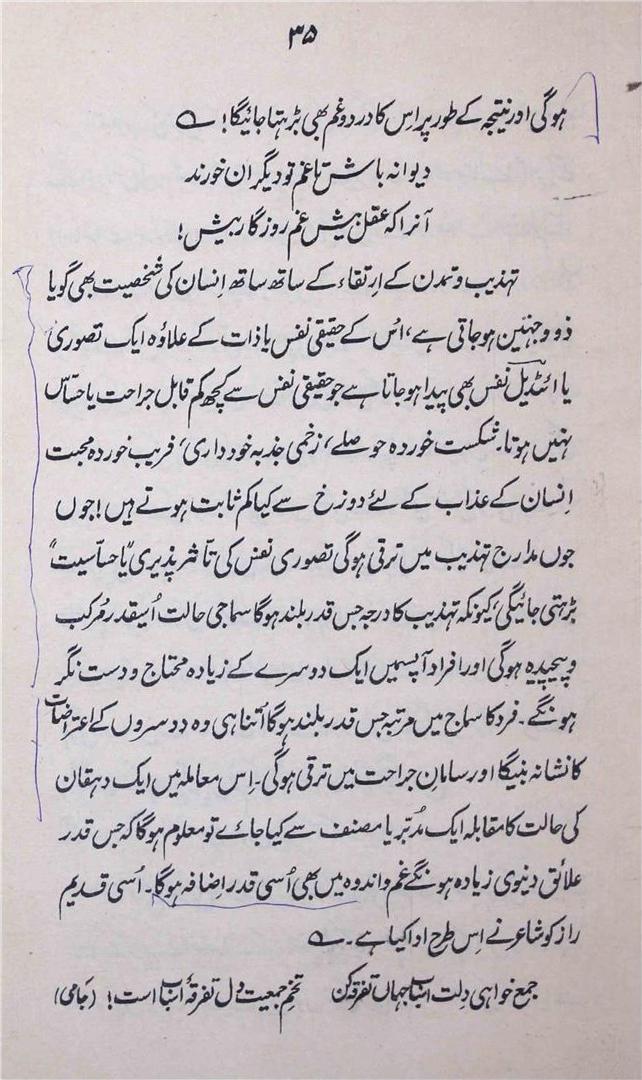 ۳۵
ہوگی اور نتیجہ کے طور پر اِس کا درد و غم بھی بڑہتا جائیگا! ؎
دیوانہ باش تا غم تو دیگران خورند
آنرا کہ عقل بیش غم روزگار بیش!
تہذیب و تمدن کے اِرتقاء کے ساتھ ساتھ اِنسان کی شخصیت بھی گویا
ذو وجہتین ہوجاتی ہے، اُس کے حقیقی نفس یا ذات کے علاوہ ایک تصوری
یا ائیڈیل نفس بھی پیدا ہوجاتا ہے جو حقیقی نفس سے کچھ کم قابل جراحت یا حسّاس
نہیں ہوتا۔ شکست خوردہ حوصلے، زخمی جذبہ خودداری، فریب خوردہ محبت
اِنسان کے عذاب کے لئے دوزخ سے کیا کم ثابت ہوتے ہیں! جوں
جوں مدارج تہذیب میں ترقی ہوگی تصوری نفس کی تاثر پذیری یا "حسّاسیت"
بڑہتی جائیگی، کیونکہ تہذیب کا درجہ جس قدر بلند ہوگا سماجی حالت اُسیقدر مُرکب
و پیچیدہ ہوگی اور افراد آپسمیں ایک دوسرے کے زیادہ محتاج و دست نگر
ہونگے۔ فرد کا سماج میں مرتبہ جس قدر بلند ہوگا اُتنا ہی وہ دوسروں کے اعتراضات
کا نشانہ بنیگا اور سامانِ جراحت میں ترقی ہوگی۔ اِس معاملہ میں ایک دہقان
کی حالت کا مقابلہ ایک مُدبّر یا مصنف سے کیا جائے تو معلوم ہوگا کہ جس قدر
علائق دنیوی زیادہ ہونگے غم و اندوہ میں بھی اُسی قدر اِضافہ ہوگا۔ اُسی قدیم
راز کو شاعر نے اِس طرح ادا کیا ہے۔ ؎
جمع خواہی دلت اسبابِ جہاں تفرقہ کن تخمِ جمعیت دل تفرقۂ اسباب است! (جامی)